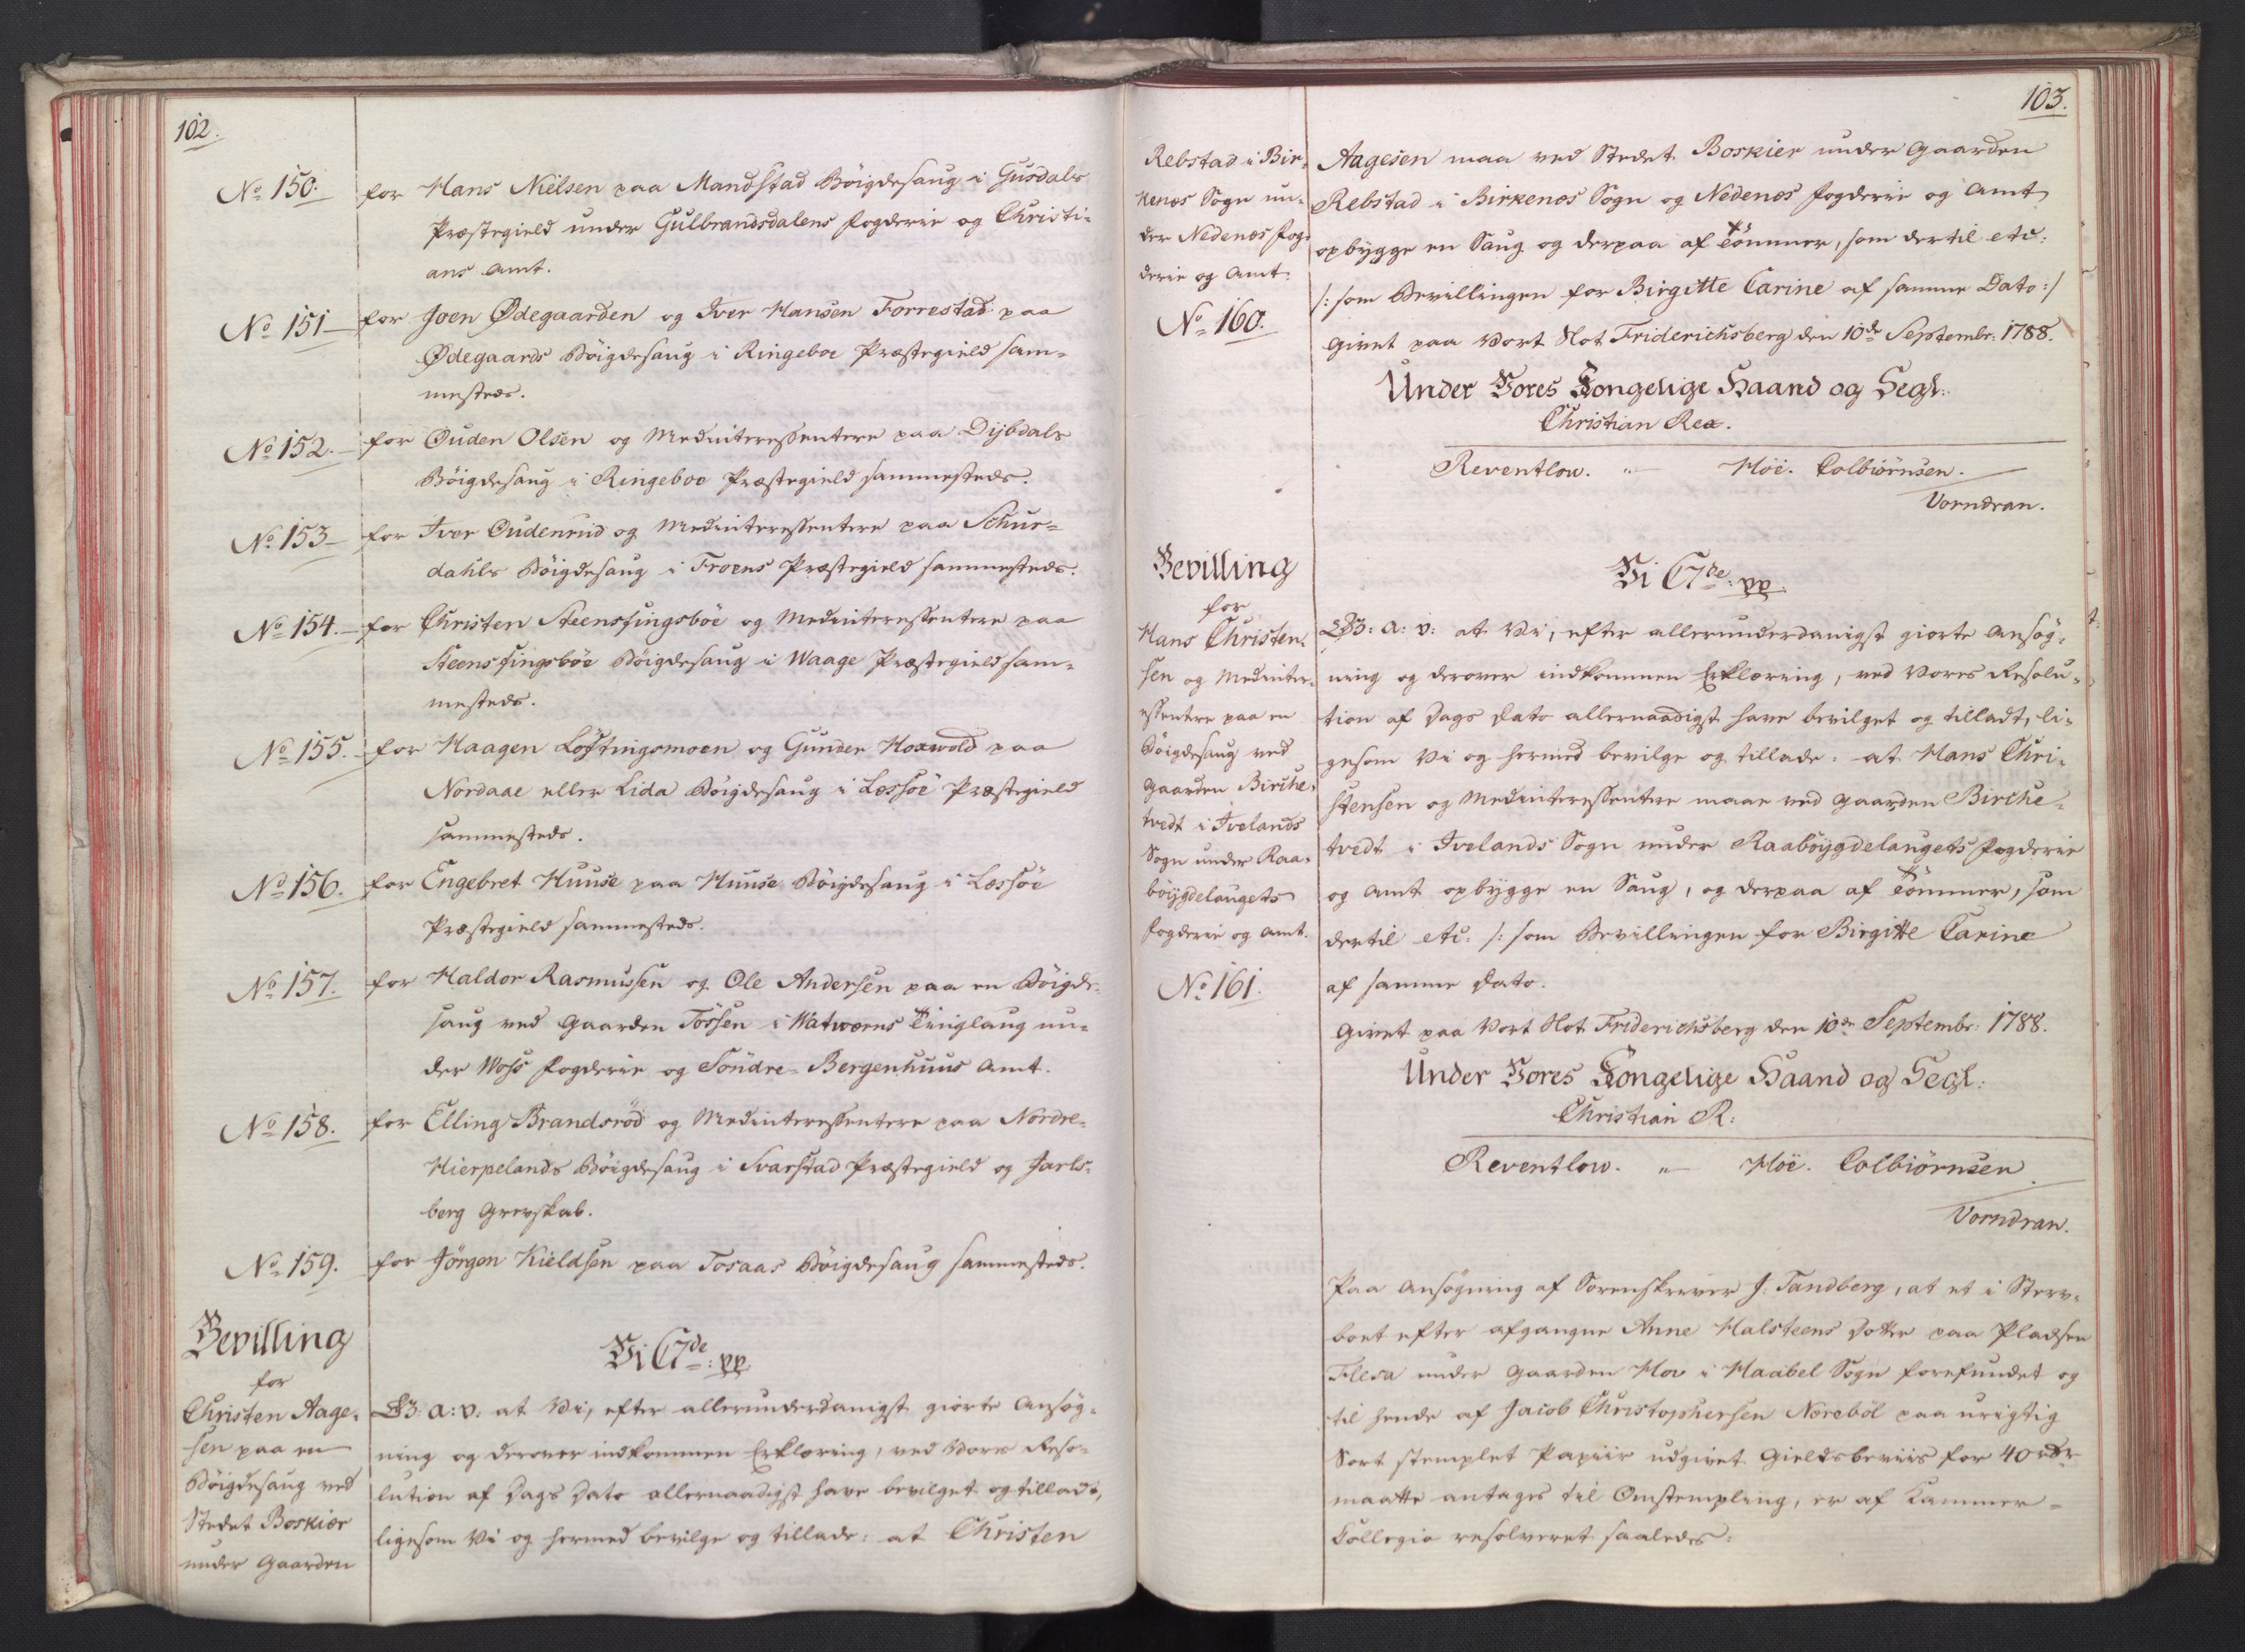 102.
No 150.
for Hans Nielsen paa Mandstad Böigdesaug i Gusdals
Præstegield under Gulbrandsdalens Fogderie og Christi=
ans Amt.
No 151
for Joen Ødegaarden og Iver Hansen Forrestad paa
Ødegaards Böigdesaug i Ringeboe Præstegield sam=
mesteds.
No 152.
for Ouden Olsen og Medinteressentere paa Dybdals
Böigdesaug i Ringeboe Præstegield sammesteds.
No 153
for Iver Oudenrud og Medinteressentere paa Schur=
dahls Böigdesaug i Froens Præstegield sammesteds.
No 154.
for Christen Steensfingsböe og Medinteressentere paa
Steensfingsböe Böigdesaug i Waage Præstegield sam=
mesteds.
No 155.
for Haagen Löftingsmoen og Gunder Hoxwold paa
Nordaae eller Lida Böigdesaug i Lessöe Præstegield
sammesteds.
No 156.
for Engebret Huuse paa Huuse Böigdesaug i Lessöe
Præstegield sammesteds.
No 157.
for Haldor Rasmussen og Ole Andersen paa en Böigde=
saug ved Gaarden Tössen i Watwærns Tinglaug un=
der Woss Fogderie og Söndre-Bergenhuus Amt.
No 158.
for Elling Brandsröd og Medinteressentere paa Nordre-
Hierpelands Böigdesaug i Svarstad Præstegield og Jarls=
berg Grevskab.
No 159.
for Jörgen Kieldsen paa Tosaas Böigdesaug sammesteds.
Bevilling
for
Christen Aage=
sen paa en
Böigdesaug ved
Stedet Boskier
under Gaarden
Vi C 7de: pp.
G: A: V: at Vi, efter allerunderdanigst giorte Ansög=
ning og derover indkommen Erklæring, ved Vores Reso=
lution af Dags Dato allernaadigst have bevilget og tilladt,
ligesom Vi og hermed bevilge og tillade: at Christen
103.
Rebstad i Bir=
kenæs Sogn un=
der Nedenæs Fog=
derie og Amt.
No 160.
Aagesen maa ved Stedet Boskier under Gaarden
Rebstad i Birkenæs Sogn og Nedenæs Fogderie og Amt
opbygge en Saug og derpaa af Tömmer, som dertil etc:
/: som Bevillingen for Birgitte Carine af samme Dato :/
Givet paa Vort Slot Friderichsberg den 10de Septembr: 1788.
Under Vores Kongelige Haand og Segl.
Christian Rex.
Reventlow. " Höe. Colbiörnsen.
Vorndran.
Bevilling
for
Hans Christen=
sen og Medinter=
essentere paa en
Böigdesaug ved
Gaarden Birche=
tvedt i Ivelands
Sogn under Raa=
böygdelaugets
Fogderie og Amt.
No 161.
Vi C 7de: pp.
G: A: V: at Vi, efter allerunderdanigst giorte Ansög=
ning og derover indkommen Erklæring, ved Vores Resolu=
tion af Dags Dato allernaadigst have bevilget og tilladt, li=
gesom Vi og hermed bevilge og tillade: at Hans Chri=
stensen og Medinteressentere maae ved Gaarden Birche=
tvedt i Ivelands Sogn under Raaböygdelaugets Fogderie
og Amt opbygge en Saug, og derpaa af Tömmer, som
dertil etc. /: som Bevillingen for Birgitte Carine
af samme Dato.
Givet paa Vort Slot Friderichsberg den 10de Septembr: 1788.
Under Vores Kongelige Haand og Segl:
Christian R:
Reventlow. " Höe. Colbiörnsen.
Vorndran.
Paa Ansögning af Sorenskriver J. Tandberg, at et i Sterv=
boet efter afgangne Anne Halsteens Dotter paa Pladsen
Flesa under Gaarden Hov i Haabel Sogn forefundet og
til hende af Jacob Christophersen Noreböl paa urigtig
Sort stemplet Papiir udgivet Gieldsbeviis for 40 rdr
maatte antages til Omstempling, er af Kammer=
Collegio resolveret saaledes: